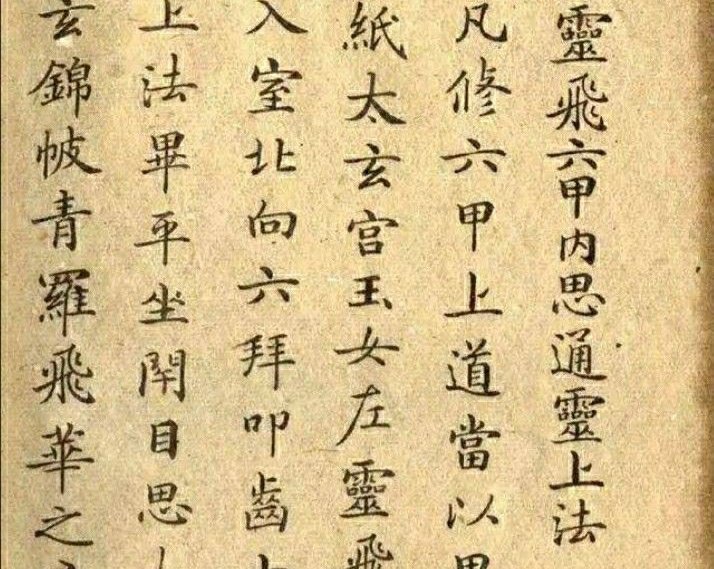 靈飛六甲内思通靈上法
凡修六甲上道當以
紙太玄宮玉女左靈飛
入室北向六拜叩齒
上法畢平坐閇目思
玄錦帔青羅飛華之